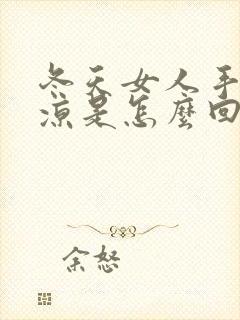 冬天女人手
凉是怎麼回
余怒